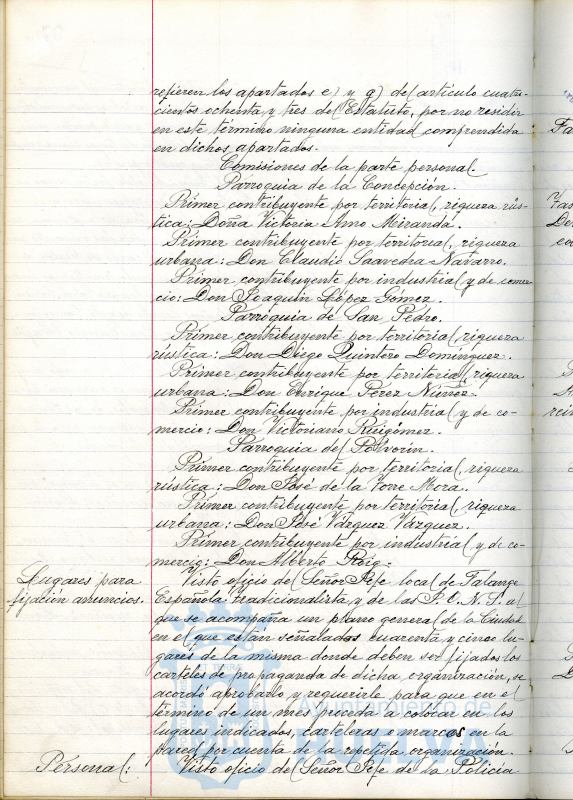 refieren los apartados e) y g) del artículo cuatro-
cientos ochenta y tres del Estatuto, por no residir
en este término ninguna entidad comprendida
en dichos apartados.
Comisiones de la parte personal.
Parroquia de la Concepción.
Primer contribuyente por territorial, riqueza rús-
tica: Doña Victoria Amo Miranda.
Primer contribuyente por territorial, riqueza
urbana: Don Claudio Saavedra Navarro.
Primer contribuyente por industrial y de comer-
cio: Don Joaquín López Gómez.
Parroquia de San Pedro.
Primer contribuyente por territorial, riqueza
rústica: Don Diego Quintero Domínguez.
Primer contribuyente por territorial, riqueza
urbana: Don Enrique Pérez Núñez.
Primer contribuyente por industrial y de co-
mercio: Don Victoriano Ruigómez.
Parroquia del Polvorín.
Primer contribuyente por territorial, riqueza
rústica: Don José de la Torre Mora.
Primer contribuyente por territorial, riqueza
urbana: Don José Vázquez Vázquez.
Primer contribuyente por industrial y de co-
mercio: Don Alberto Roig.
Lugares para
fijación anuncios.
Visto oficio del Señor Jefe local de Falange
Española Tradicionalista y de las J.O.N.S. al
que se acompaña un plano general de la Ciudad
en el que están señalados cuarenta y cinco lu-
gares de la misma donde deben ser fijados los
carteles de propaganda de dicha organización, se
acordó aprobarlo y requerirle para que en el
término de un mes proceda a colocar en los
lugares indicados, carteleras o marcos en la
pared por cuenta de la repetida organización.
Personal:
Visto oficio del Señor Jefe de la Policía
Ayuntamiento de